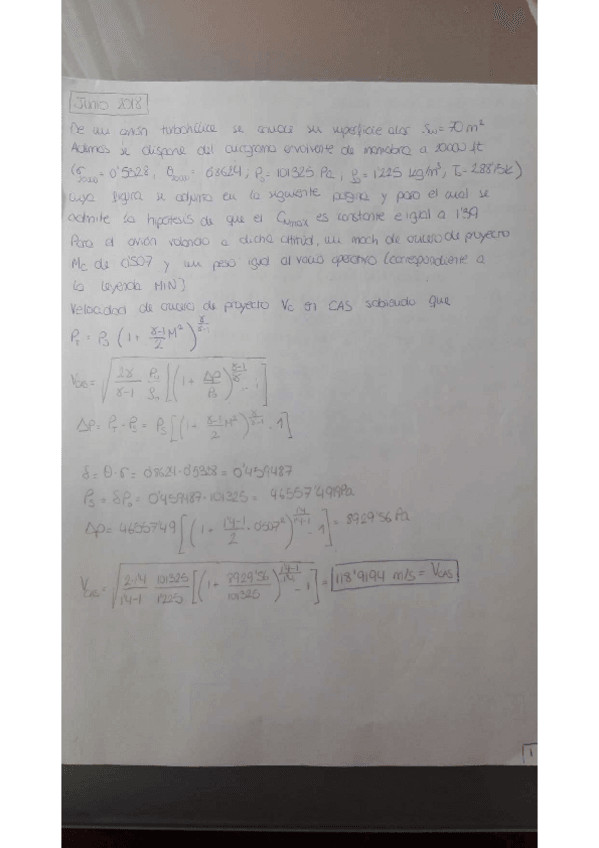 Junio 2018
De un avión turbohélice se conoce su superficie alar Sw = 70 m²
Además se dispone del diagrama envolvente de maniobra a 20000 ft
(σ20000 = 0'5328, θ20000 = 0'8624, P0 = 101325 Pa, ρ0 = 1'225 kg/m³, T0 = 288'15K)
cuya figura se adjunta en la siguiente página y para el cual se
admite la hipótesis de que el CNmax es constante e igual a 1'39
Para el avión volando a dicha altitud, un mach de crucero de proyecto
Mc de 0'507 y un peso igual al vacío operativo (correspondiente a
la leyenda MIN)
Velocidad de crucero de proyecto Vc en CAS sabiendo que
Pt = Ps (1 + γ-1/2 M²)^γ/γ-1
VCAS = √(2γ/γ-1 P0/ρ0 [(1 + Δp/P0)^γ-1/γ - 1])
Δp = Pt - Ps = Ps [(1 + γ-1/2 M²)^γ/γ-1 - 1]
δ = θ·σ = 0'8624·0'5328 = 0'459487
Ps = δP0 = 0'459487·101325 = 46557'49Pa
Δp = 46557'49 [(1 + 1'4-1/2 · 0'507²)^1'4/1'4-1 - 1] = 8929'56 Pa
VCAS = √(2·1'4/1'4-1 101325/1'225 [(1 + 8929'56/101325)^1'4-1/1'4 - 1]) = 118'9194 m/s = VCAS
1